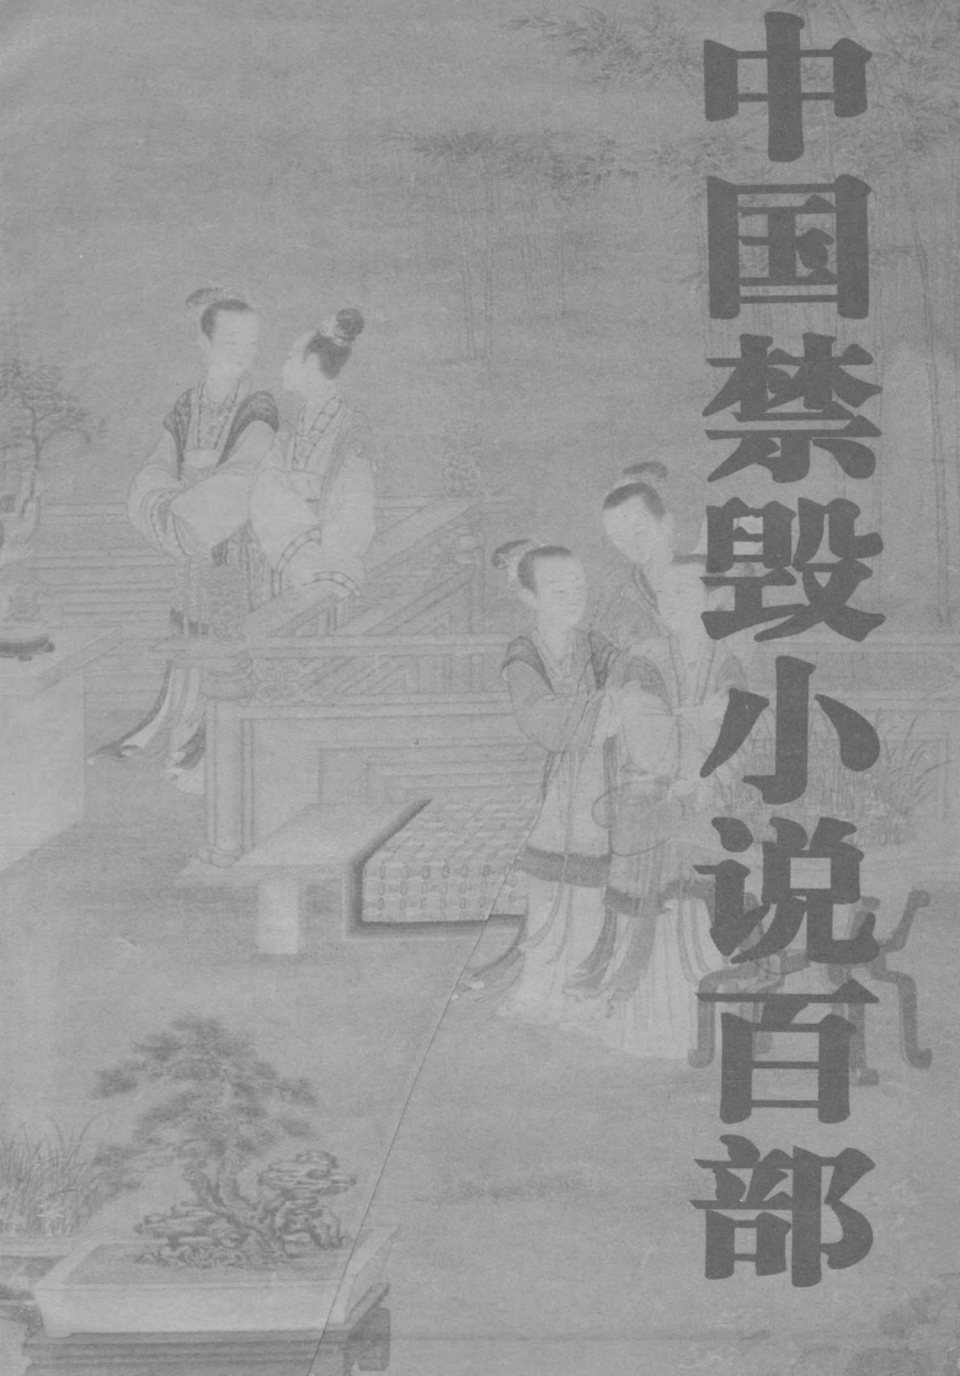 中国禁毁小说百部